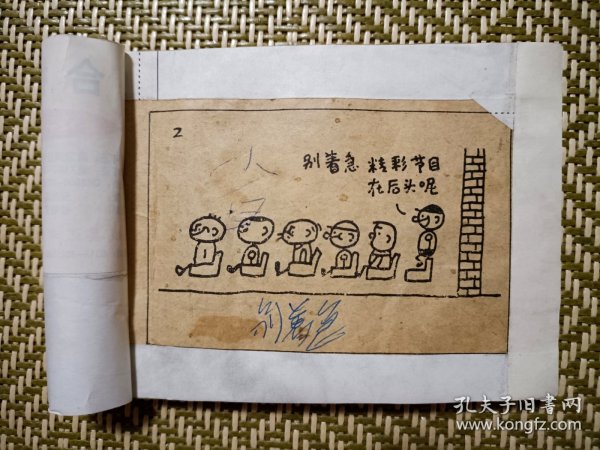 合
2
别着急 精彩节目
在后头呢
别着急
孔夫子旧書网
www.kongfz.com